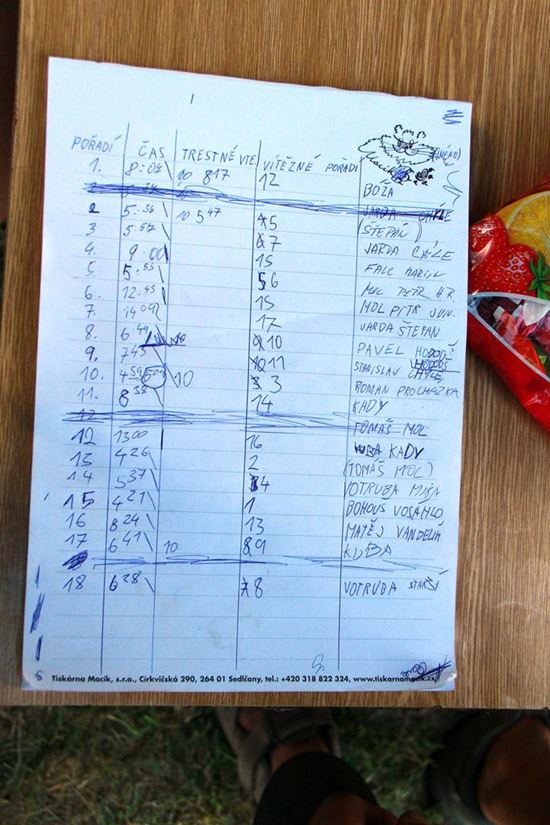 POŘADÍ ČAS TRESTNÉ VTE. VÍTĚZNÉ POŘADÍ (JMÉNO)
1. 8:04 10 8 17 12 BOŽA
2 5:34 10 5 47 5 (ŠTEPÁN)
3. 5:57 7 JARDA CHLE
4. 9:00 15
5. 5:55 6
6. 12:45 15 MOL PETR JUN.
7. 14 09 17 JARDA ŠTEFAN
8. 6 49 10 PAVEL HODOŠ
9. 7 45 11 STANISLAV
10. 4 54 5 04 10 3 ROMAN PROCHÁZKA
11. 8 38 14 KADY
TOMÁŠ MOL
12 13 00 16 KADY
13 4 26 2 (TOMÁŠ MOL)
14 5 37 4 VOTRUBA MÍŠA
15 4 21 1 BOHOUS VOSAHLO
16 8 24 13 MATĚJ VANDELIA
17 6 41 10 9 KUBA
18 6 28 8 VOTRUBA STARŠÍ
6 Tiskárna Macík, s.r.o., Církvičská 290, 264 01 Sedlčany, tel.: +420 318 822 324, www.tiskarnamacik.cz